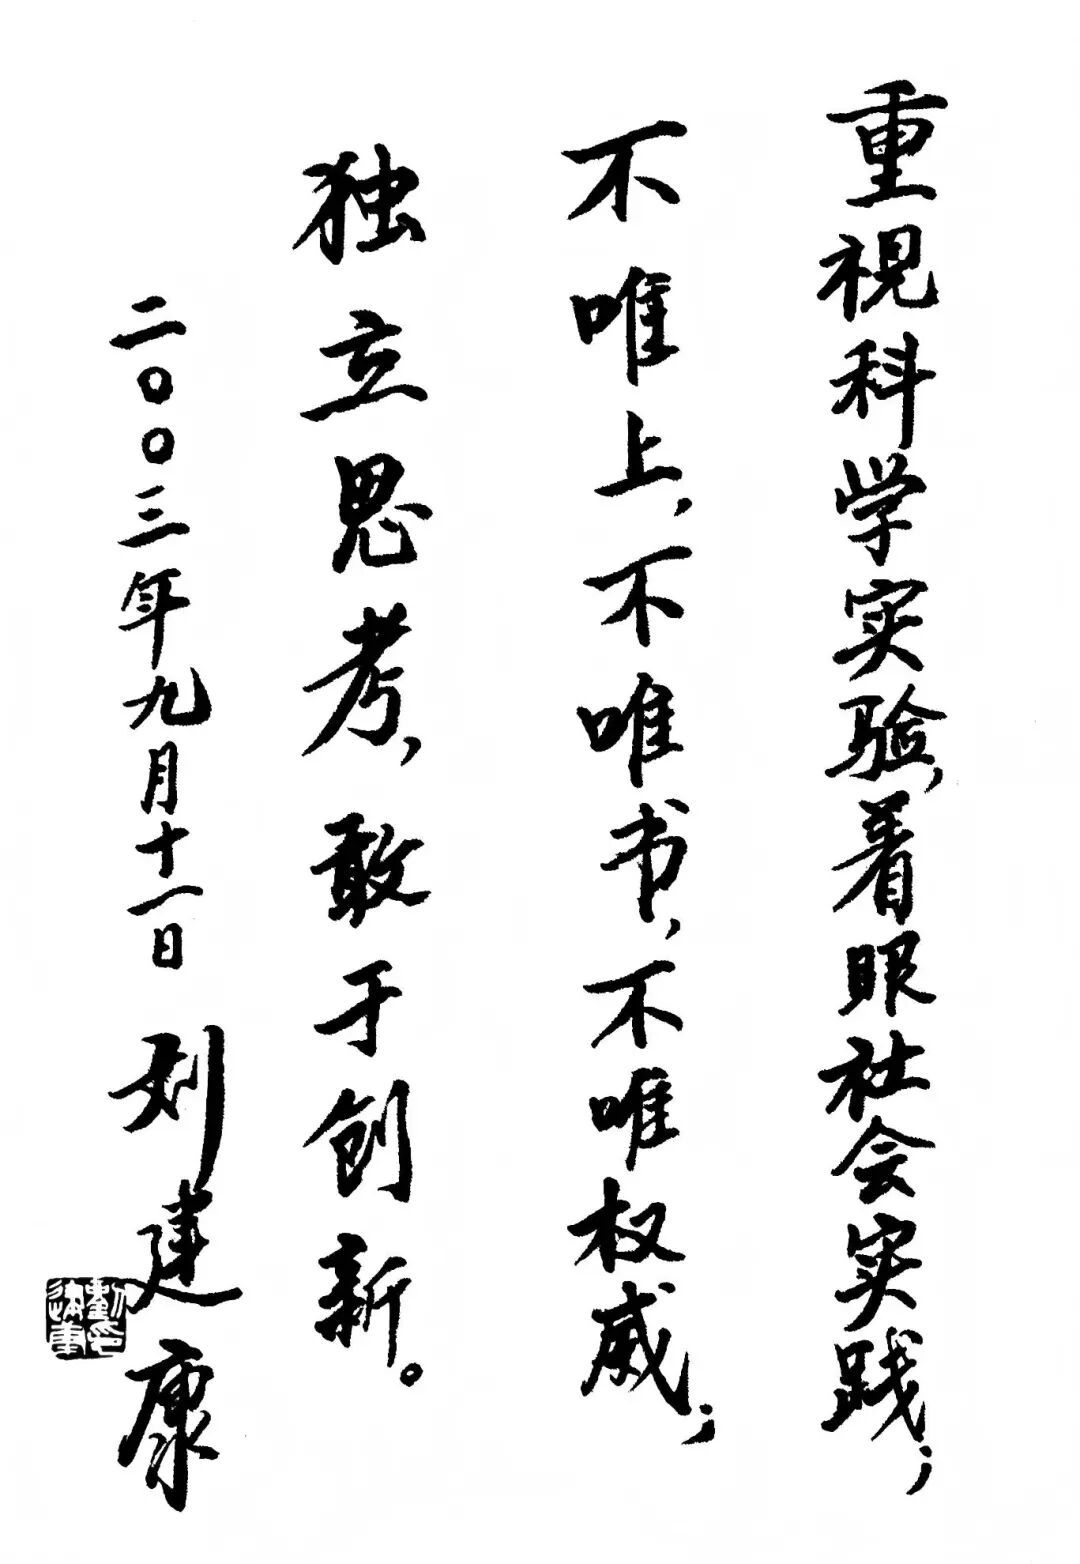 重视科学实验，着眼社会实践；
不唯上，不唯书，不唯权威；
独立思考，敢于创新。
二〇〇三年九月十一日 刘建康
劉建康印